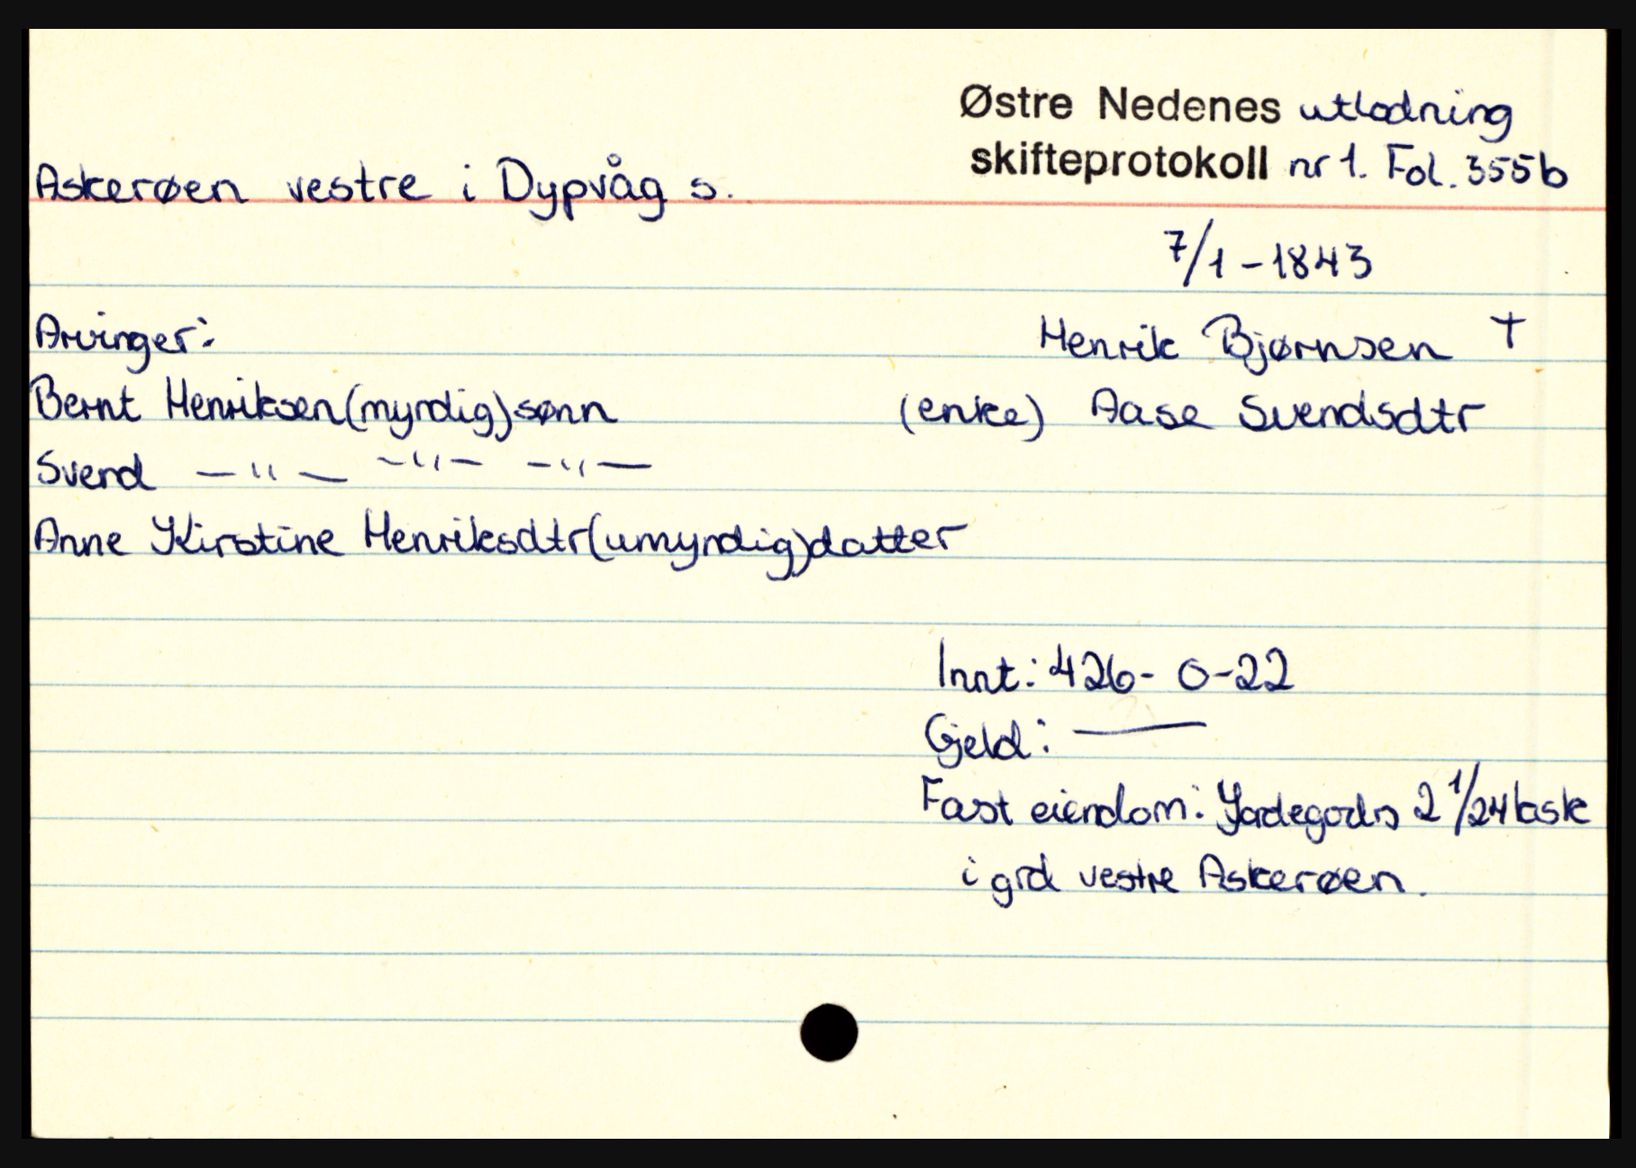 Østre Nedenes utlodning
skifteprotokoll nr 1. Fol. 355b
Askerøen vestre i Dypvåg s.
7/1-1843
Arvinger:
Henrik Bjørnsen †
Bernt Henriksen (myndig) sønn
(enke) Aase Svendsdtr
Svend —"— —"— —"—
Anne Kirstine Henriksdtr (umyndig) datter
Innt: 426- 0-22
Gjeld: —
Fast eiendom: Jordegods 2 1/24 kalvsk
i grd vestre Askerøen.